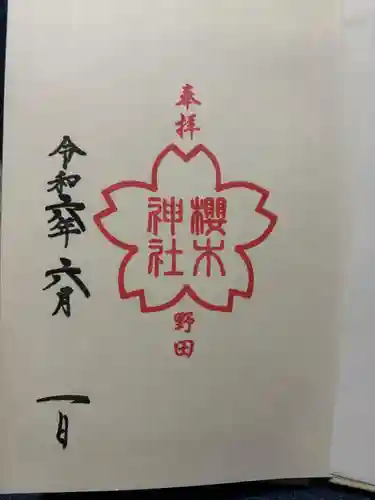 奉拝
櫻木
神社
野田
令和六年六月一日